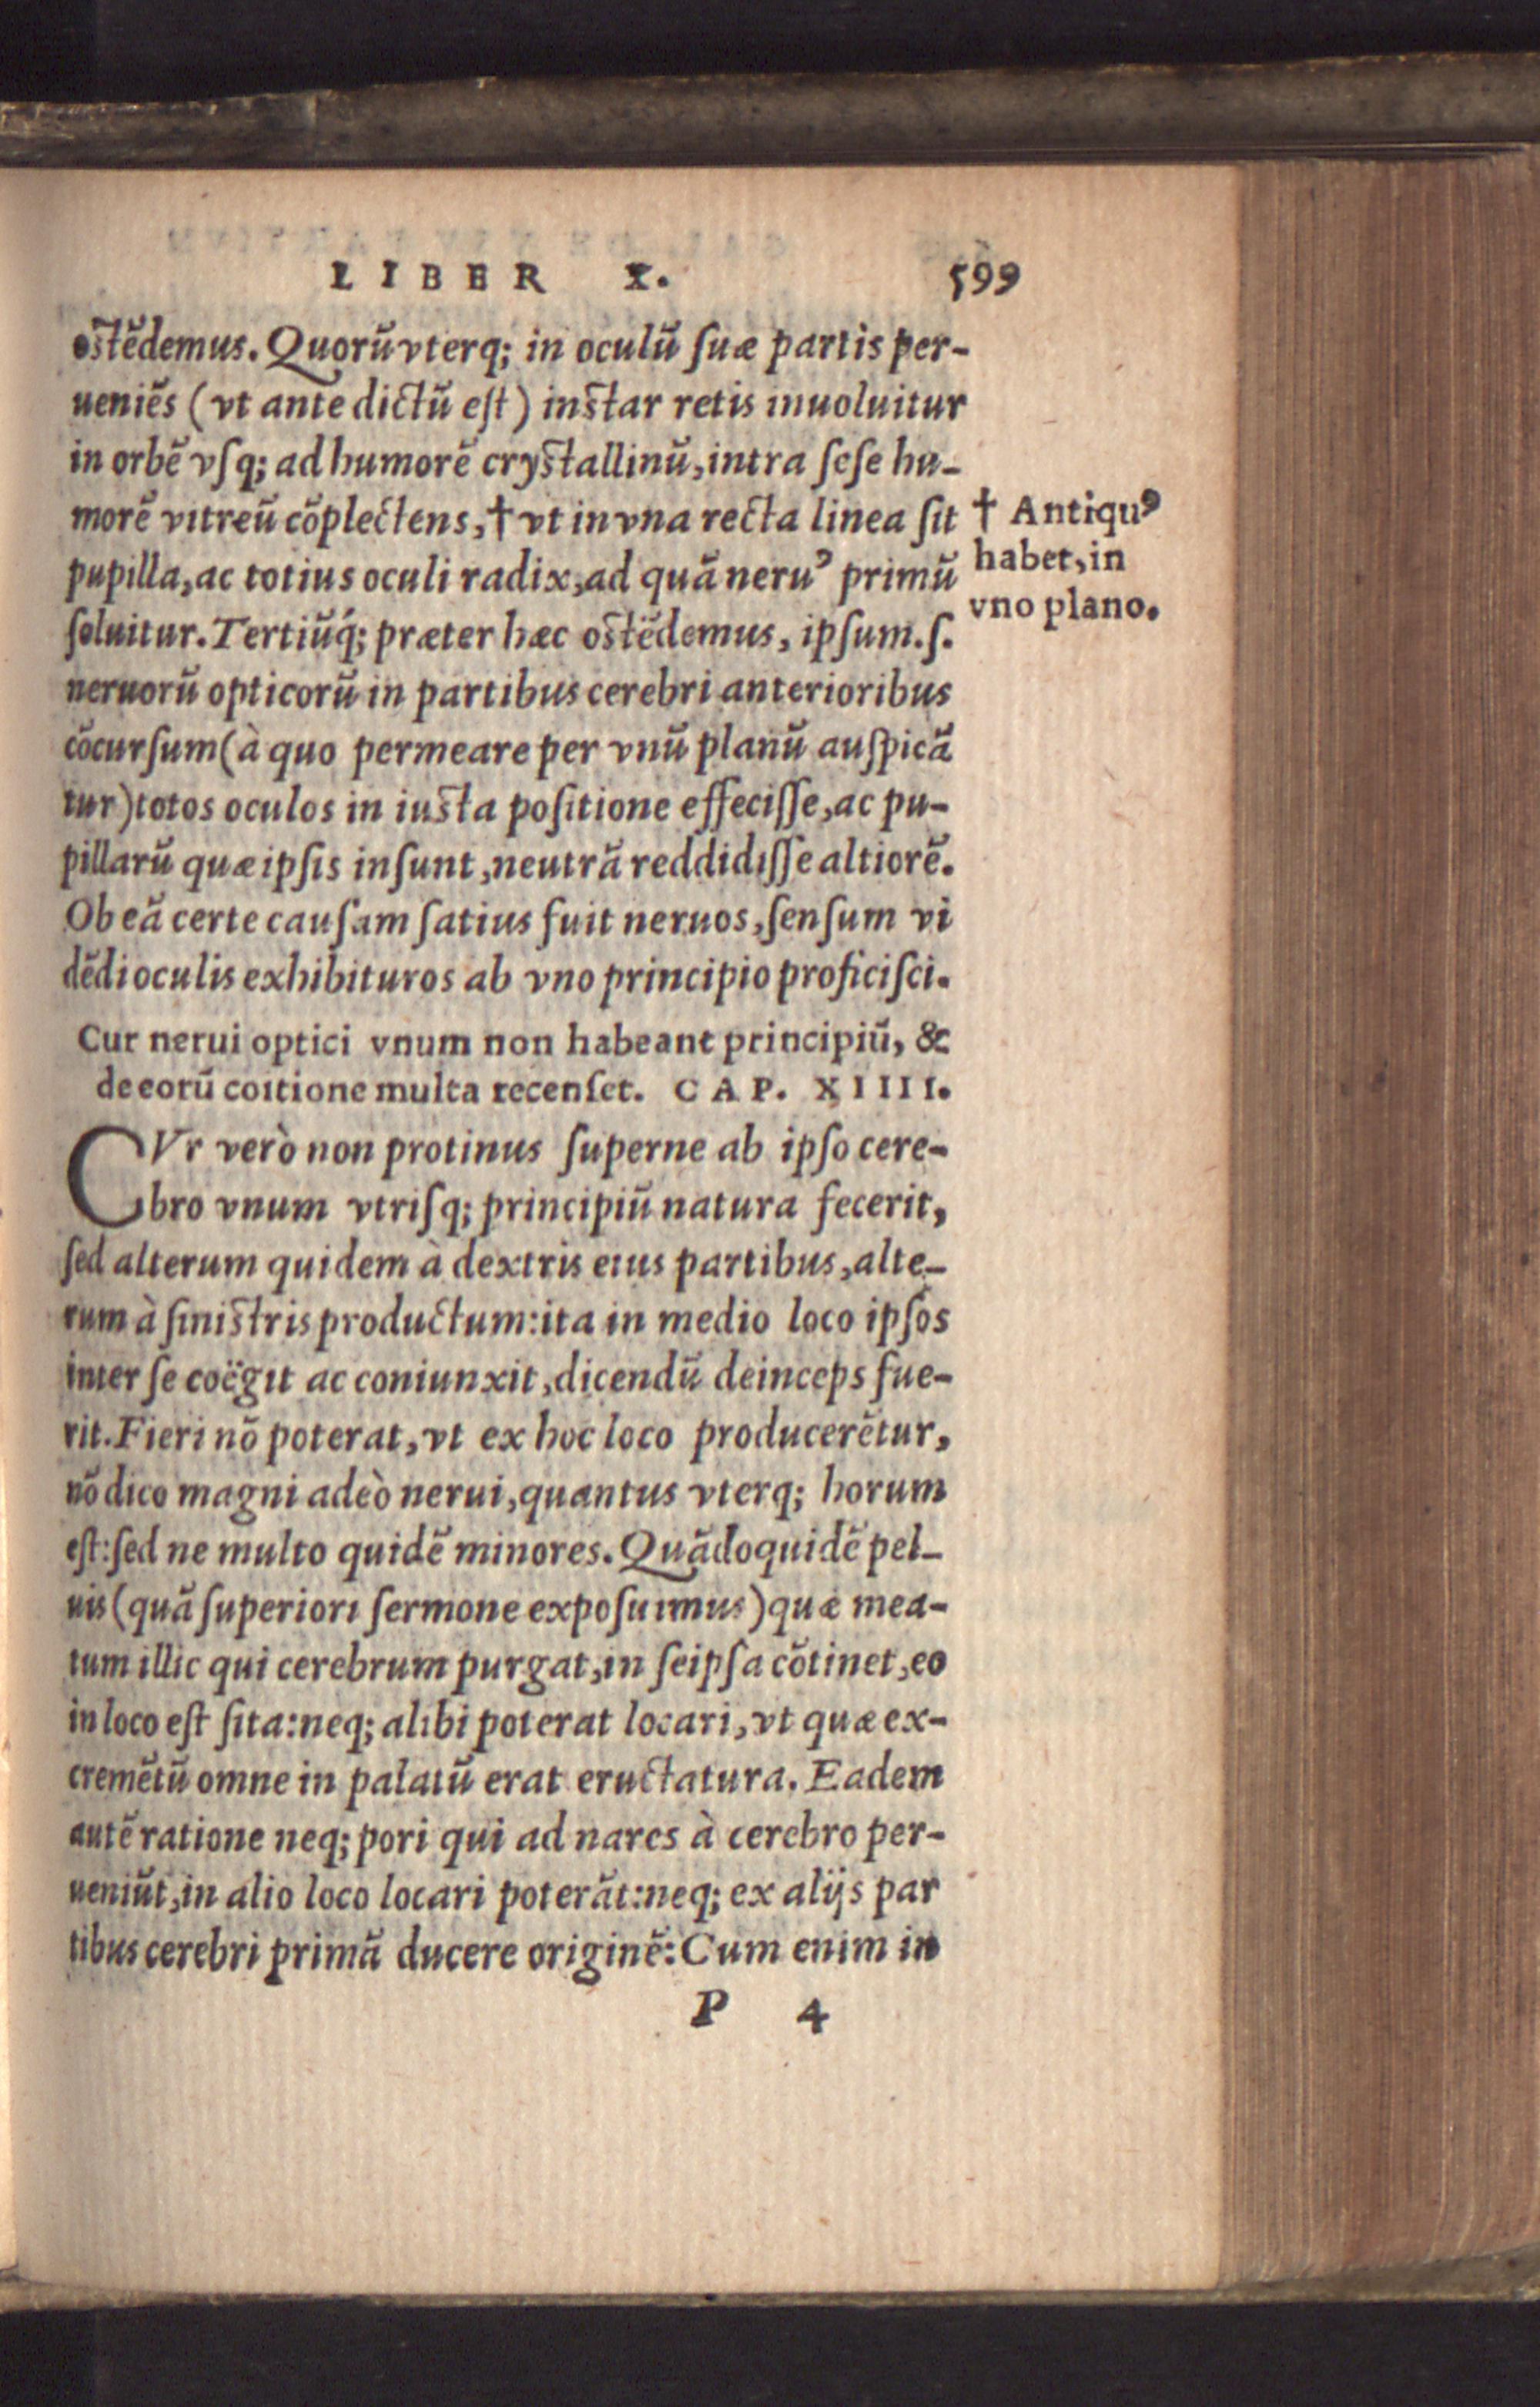 LIBER X. 599
ostēdemus. Quorū vterq; in oculū suæ partis per-
ueniēs (vt ante dictū est) instar retis inuoluitur
in orbē vsq; ad humorē crystallinū, intra sese hu-
morē vitreū cōplectens, † vt in vna recta linea sit
pupilla, ac totius oculi radix, ad quā neruꝰ primū
soluitur. Tertiūq́; præter hæc ostēdemus, ipsum .s.
neruorū opticorū in partibus cerebri anterioribus
cōcursum (à quo permeare per vnū planū auspicā
tur) totos oculos in iusta positione effecisse, ac pu-
pillarū quæ ipsis insunt, neutrā reddidisse altiorē.
Ob eā certe causam satius fuit neruos, sensum vi
dēdi oculis exhibituros ab vno principio proficisci.
† Antiquꝰ
habet, in
vno plano.
Cur nerui optici vnum non habeant principiū, &
de eorū coitione multa recenset. CAP. XIIII.
CVr verò non protinus superne ab ipso cere-
bro vnum vtrisq; principiū natura fecerit,
sed alterum quidem à dextris eius partibus, alte-
rum à sinistris productum: ita in medio loco ipsos
inter se coëgit ac coniunxit, dicendū deinceps fue-
rit. Fieri nō poterat, vt ex hoc loco producerētur,
nō dico magni adeò nerui, quantus vterq; horum
est: sed ne multo quidē minores. Quādoquidē pel-
uis (quā superiori sermone exposuimus) quæ mea-
tum illic qui cerebrum purgat, in seipsa cōtinet, eo
in loco est sita: neq; alibi poterat locari, vt quæ ex-
cremētū omne in palatū erat eructatura. Eadem
autē ratione neq; pori qui ad nares à cerebro per-
ueniūt, in alio loco locari poterāt: neq; ex alijs par
tibus cerebri primā ducere originē: Cum enim in
P 4